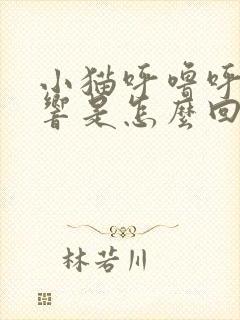 小猫呼噜呼
響是怎麽回
林若川